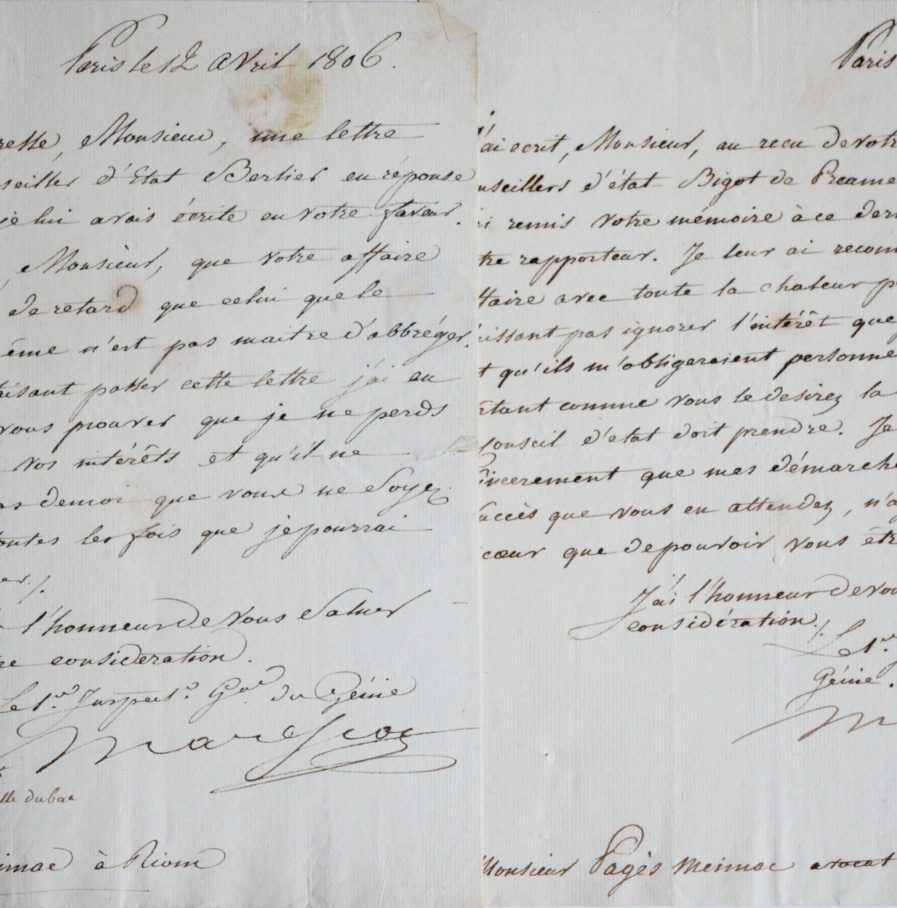 Paris le 12 Avril 1806.
resse, Monsieur, une lettre
seiller d'Etat Berlier en réponse
je lui avais écrite en votre faveur.
Monsieur, que votre affaire
de retard que celui que le
ême n'est pas maitre d'abbréger.
aisant passer cette lettre j'ai eu
vous prouver que je ne perds
vos intérêts et qu'il ne
as de moi que vous ne soyez
toutes les fois que je pourrai
er./.
l'honneur de vous saluer
considération.
Le 1er Inspectr Gal du Génie
Marescot
imac à Riom
Paris
J'ai écrit, Monsieur, au recu de votr
nseillers d'état Bigot de Preame
ai remis votre mémoire à ce der
tre rapporteur. Je leur ai recom
ffaire avec toute la chaleur p
issant pas ignorer l'intérêt que
t qu'ils m'obligeraient personne
étant comme vous le desirez la
Conseil d'état doit prendre. Je
sincerement que mes démarche
succès que vous en attendez, n'a
cœur que de pouvoir vous êtr
J'ai l'honneur de vou
considération./.
Le 1er
Génie.
M
Monsieur Pagès Meimac avocat